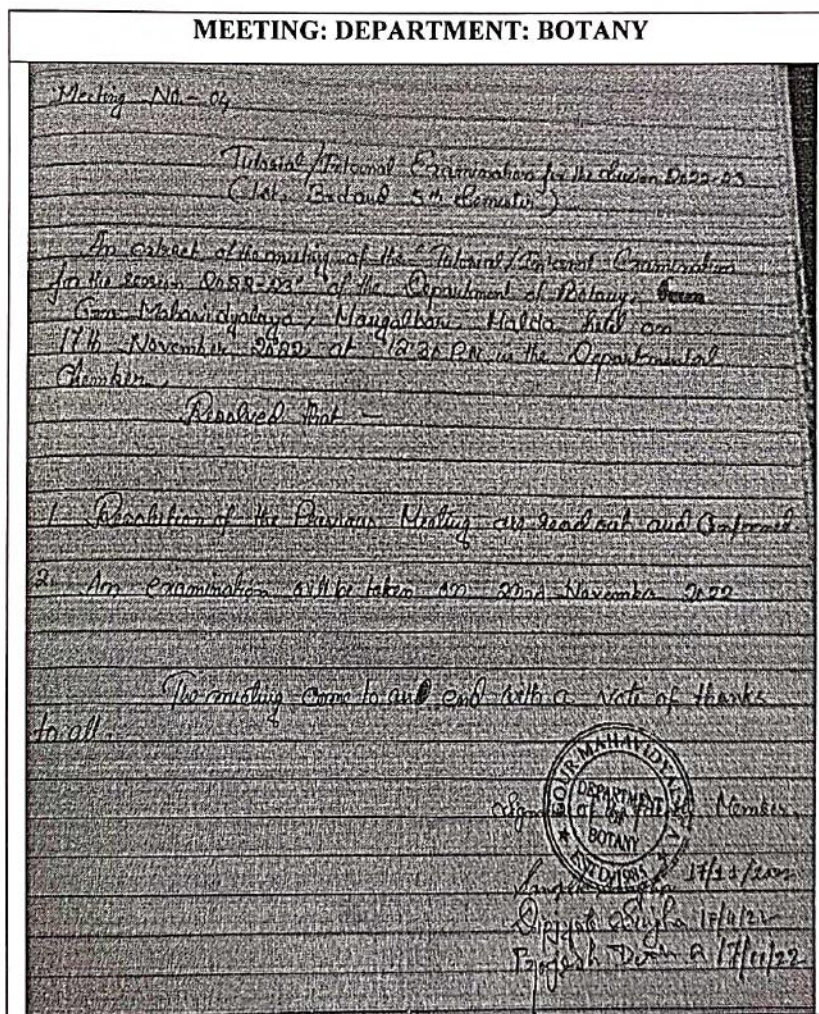 MEETING: DEPARTMENT: BOTANY
Meeting No.- 04
Tutorial/Internal Examination for the session 2022-23
(1st, 3rd and 5th Semester)
An extract of the meeting of the "Tutorial/Internal Examination
for the session 2022-23" of the Department of Botany,
Mahavidyalaya, Mangalbari, Malda held on
17th November 2022, at 12:30 PM in the Departmental
Chember.
Resolved that -
1. Resolution of the Previous Meeting are read out and Confirmed
2. An examination will be taken on 22nd November 2022
The meeting come to an end with a vote of thanks
to all.
GOUR MAHAVIDYALAYA
DEPARTMENT
OF
BOTANY
ESTD-1985
of Member.
17/11/2022
Singha 17/11/22
17/11/22